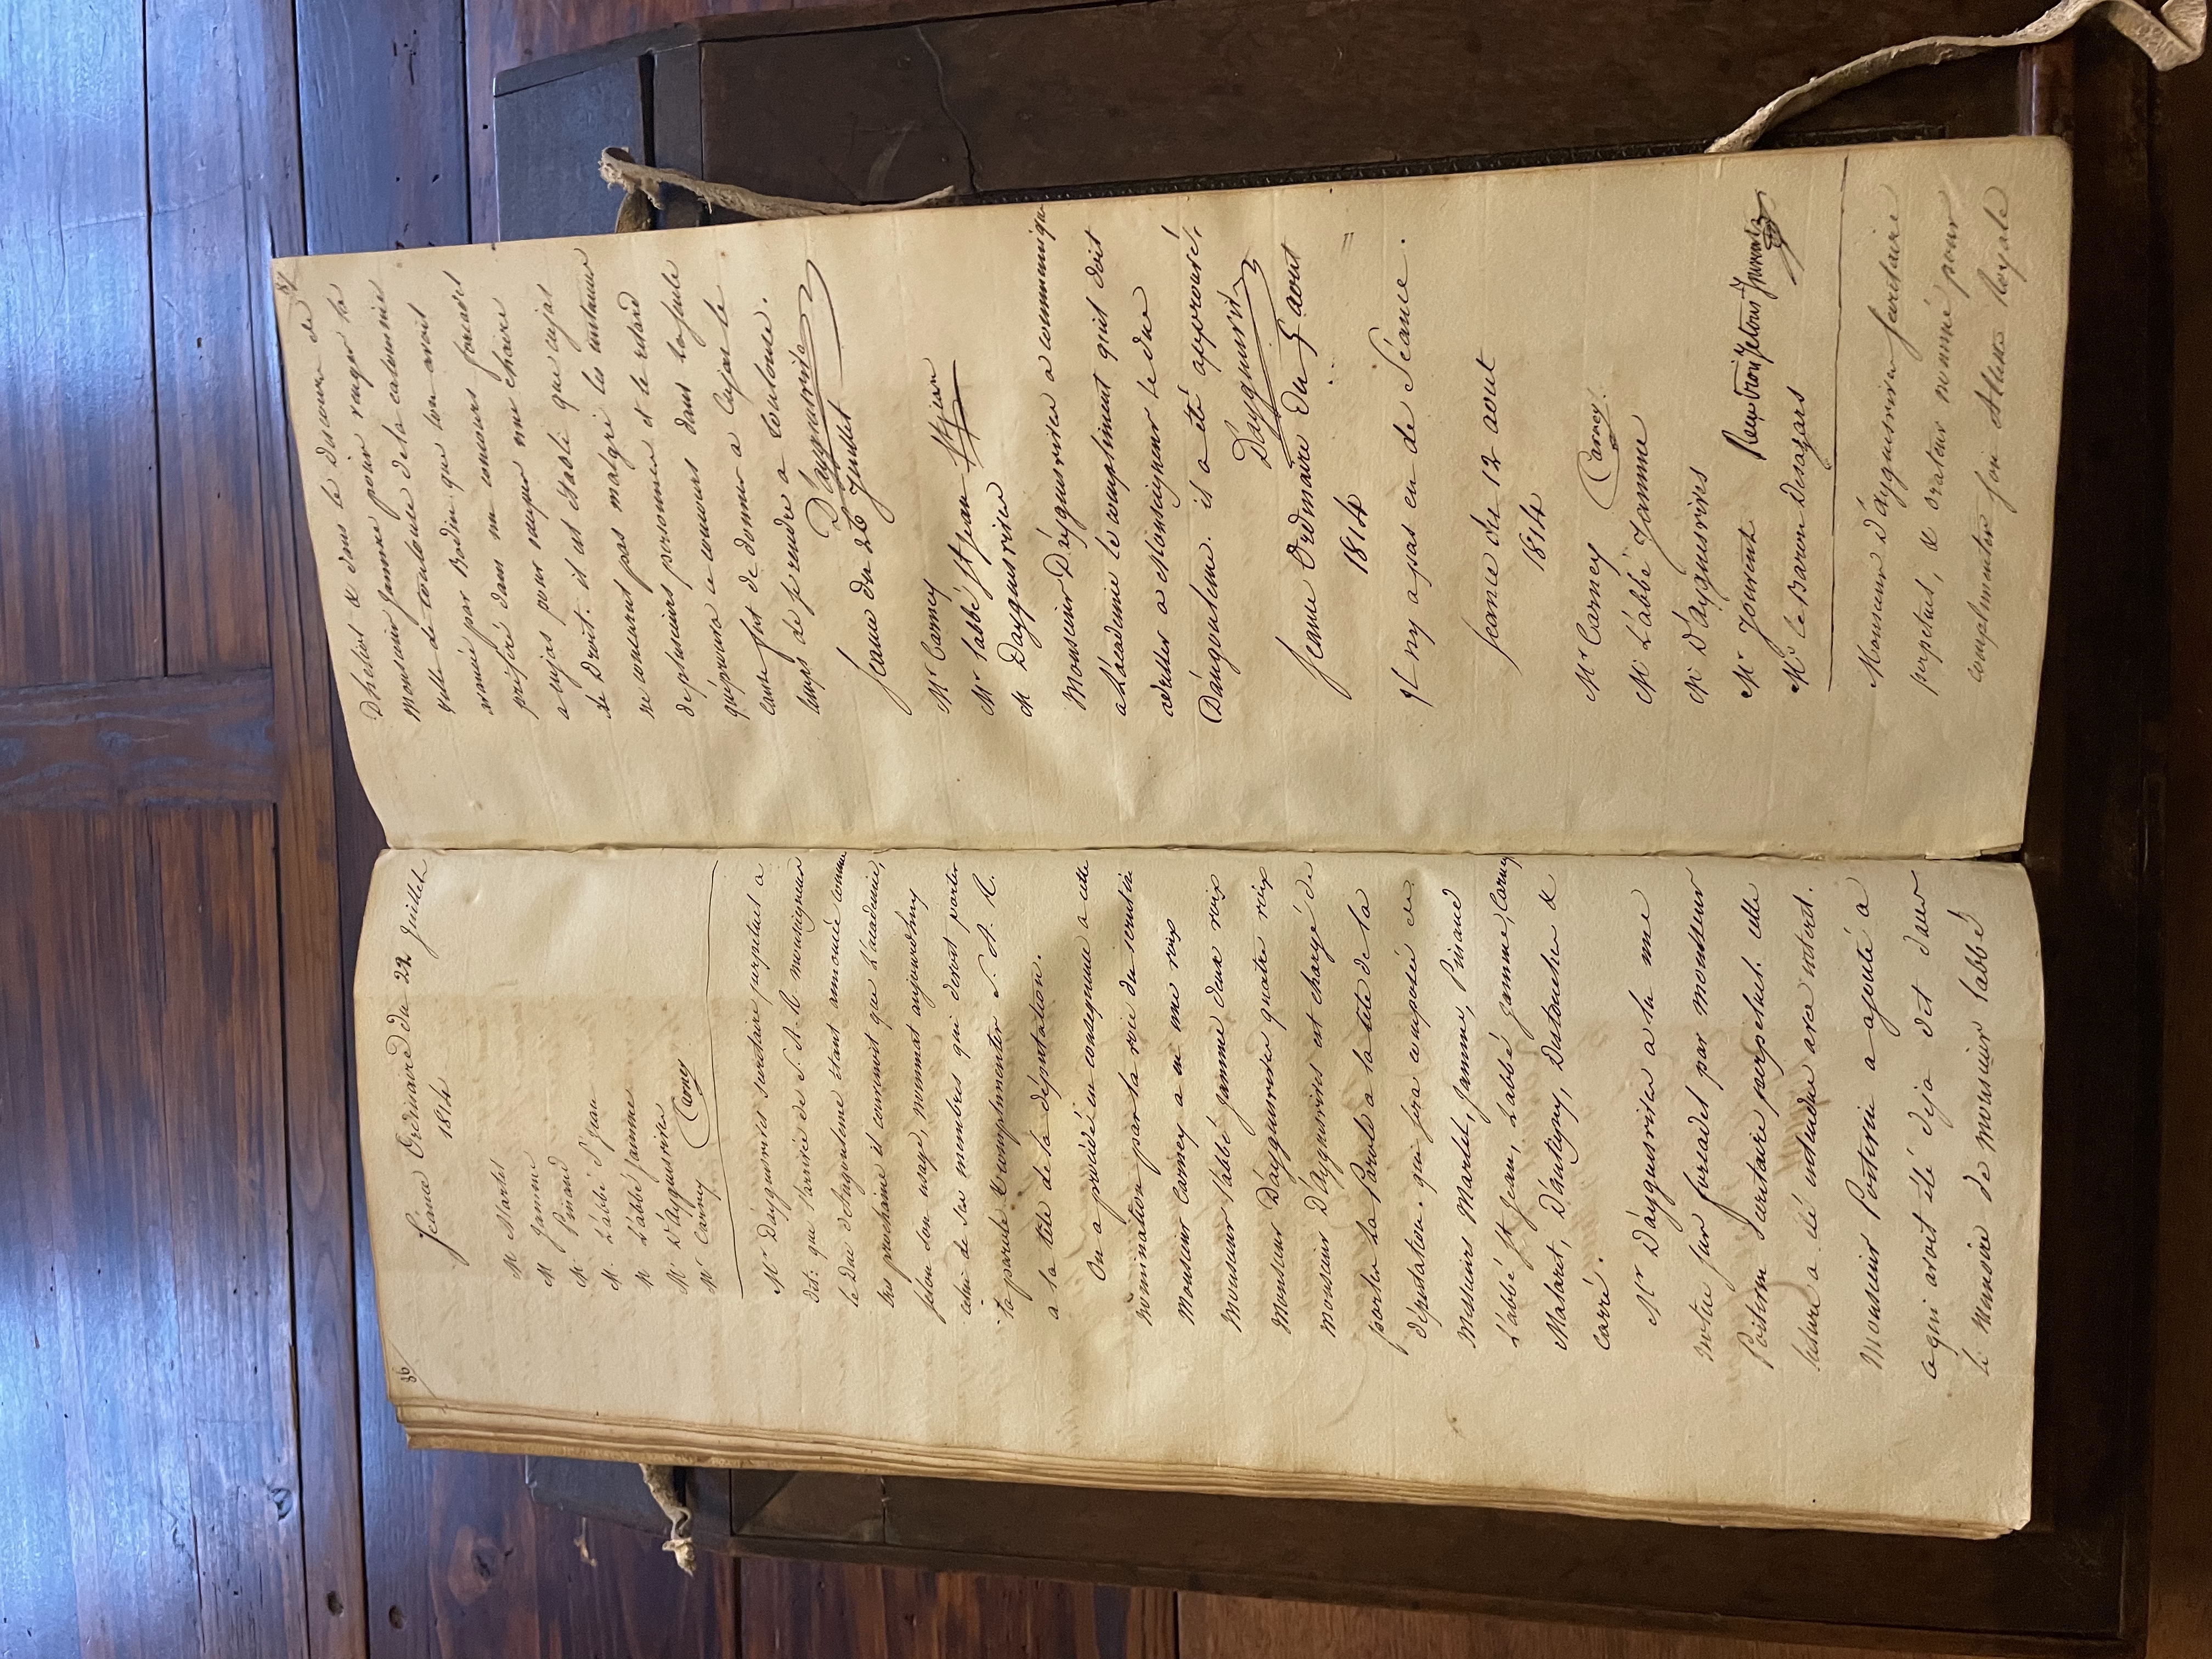 86
Séance Ordinaire du 22 Juillet
1814
M Martel
M Jamme
M. Pinaud
M. L'abbé St Jean
M L'abbé Jamme
Mr D'ayguesvives
Mr Carney Carney
Mr D'ayguesvives secretaire perpetuel a
dit: que l'arrivée de S. A. R. monseigneur
le Duc d'angouleme étant annoncée comme
tres prochaine il convenoit que L'academie,
selon son usage, nommat aujourdhuy
celui de ses membres qui devoit porter
la parole & complimenter S. A. R.
a la tête de la députation.
On a procédé en consequence a cette
nomination par la voie du scrutin
Monsieur Carney a eu une voix
Monsieur l'abbé Jamme deux voix
Monsieur D'ayguesvives quatre voix
monsieur D'ayguesvives est chargé de
porter la Parole a la tête de la
députation. qui sera composée de
Messieurs Martel, Jamme, Pinaud
L'abbé St Jean, L'abbé Jamme, Carney
Malaret, D'antigny, Dutouches &
Carré.
Mr D'ayguesvives a lu une
notte sur forcadel par monsieur
Poitevin Secretaire perpetuel. cette
lecture a été entendue avec interet.
Monsieur Poitevin a ajouté a
ce qui avoit été deja dit dans
le Memoire de monsieur l'abbé
87
D'heliot & dans le discours de
Monsieur Jamme pour venger la
ville de toulouse de la calomnie
avancée par Bodin que l'on avoit
préféré dans un concours forcadel
a cujas pour occuper une chaire
de Droit. il est établi que cujas
ne concourut pas malgré les instances
de plusieurs personnes et le retard
qu'éprouva ce concours dans la seule
cause fut de donner a Cujas le
temps de se rendre a toulouse.
D'ayguesvives
Seance du 26 Juillet
Mr Carney
Mr l'abbé St Jean St jean
M Dayguesvives
Monsieur D'ayguesvives a communiqué
a L'academie le compliment qu'il doit
adresser a Monseigneur le duc
D'angouleme. il a été approuvé.
D'ayguesvives
Seance Ordinaire du 5 aout
1814
Il n'y a pas eu de Séance.
Seance du 12 aout
1814
Mr Carney Carney
M L'abbé Jamme
M D'ayguesvives
Mr Jouvent
Mr le Baron Desazars
Monsieur d'ayguesvives secretaire
perpetuel, & orateur nommé pour
complimenter son Altesse Royale